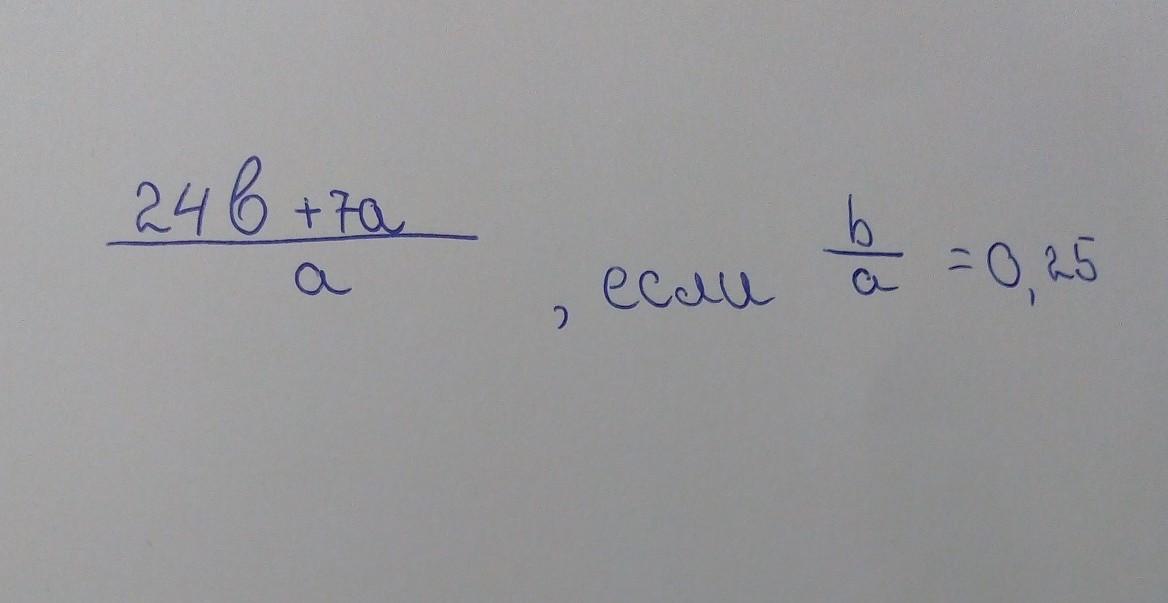 24b + 7a
a
, если b/a = 0,25